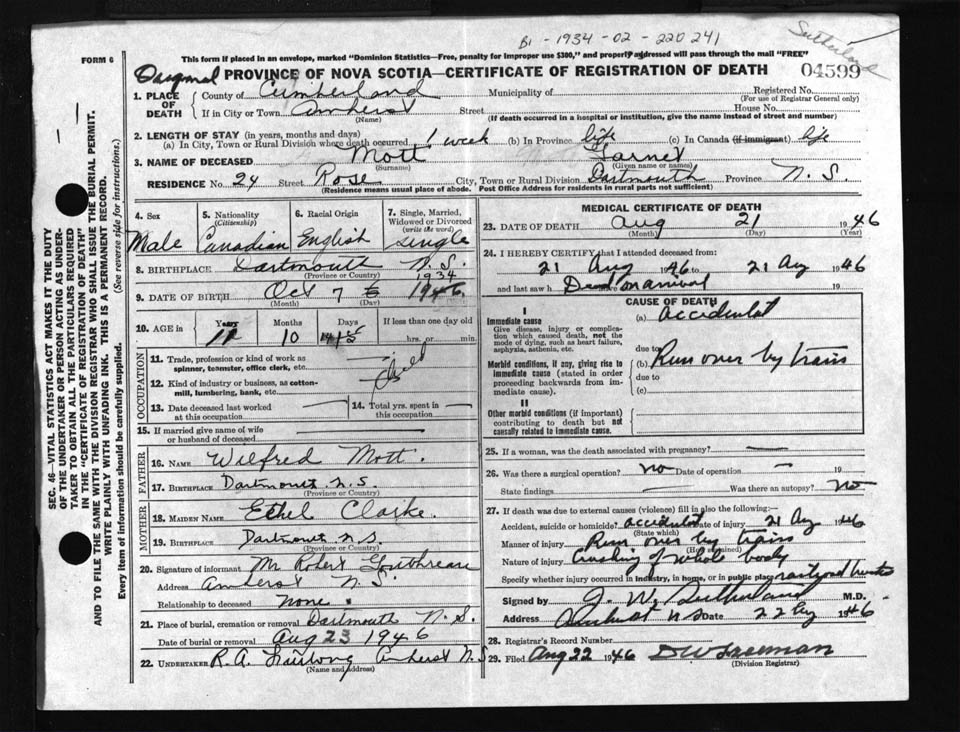 B1 - 1934 - 02 - 220241
Sutherland
FORM 6
This form if placed in an envelope, marked "Dominion Statistics—Free, penalty for improper use $300," and properly addressed will pass through the mail "FREE"
PROVINCE OF NOVA SCOTIA—CERTIFICATE OF REGISTRATION OF DEATH
04599
1. PLACE OF DEATH
County of Cumberland Municipality of Registered No.
(For use of Registrar General only)
If in City or Town Amherst Street House No.
(Name) (If death occurred in a hospital or institution, give the name instead of street and number)
2. LENGTH OF STAY (in years, months and days)
(a) In City, Town or Rural Division where death occurred 1 week (b) In Province life (c) In Canada (if immigrant) life
3. NAME OF DECEASED Mott Garnet
(Surname) (Given name or names)
RESIDENCE No. 24 Street Rose City, Town or Rural Division Dartmouth Province N. S.
(Residence means usual place of abode. Post Office Address for residents in rural parts not sufficient)
4. Sex
Male
5. Nationality
(Citizenship)
Canadian
6. Racial Origin
English
7. Single, Married, Widowed or Divorced
(write the word)
single
8. BIRTHPLACE Dartmouth N. S.
(Province or Country)
1934
9. DATE OF BIRTH Oct 7 1946
(Month) (Day)
10. AGE in Years Months Days If less than one day old
11 10 15 hrs. or min.
OCCUPATION
11. Trade, profession or kind of work as spinner, teamster, office clerk, etc.
12. Kind of industry or business, as cotton-mill, lumbering, bank, etc.
13. Date deceased last worked at this occupation
14. Total yrs. spent in this occupation
15. If married give name of wife or husband of deceased
FATHER
16. NAME Wilfred Mott.
17. BIRTHPLACE Dartmouth N. S.
(Province or Country)
MOTHER
18. MAIDEN NAME Ethel Clarke.
19. BIRTHPLACE Dartmouth N S.
(Province or Country)
20. Signature of informant Mr Robert
Address Amherst N. S.
Relationship to deceased None.
21. Place of burial, cremation or removal Dartmouth N. S.
Date of burial or removal Aug 23 1946
22. UNDERTAKER R. A. Amherst N. S
(Name and address)
MEDICAL CERTIFICATE OF DEATH
23. DATE OF DEATH Aug 21 1946
(Month) (Day) (Year)
24. I HEREBY CERTIFY that I attended deceased from
21 Aug 1946 to 21 Aug 1946
and last saw h Dead on arrival 19
CAUSE OF DEATH
I
Immediate cause
Give disease, injury or complication which caused death, not the mode of dying, such as heart failure, asphyxia, asthenia, etc.
(a) accidental
due to
Morbid conditions, if any, giving rise to immediate cause (stated in order proceeding backwards from immediate cause).
(b) Run over by train
due to
(c)
II
Other morbid conditions (if important) contributing to death but not causally related to immediate cause.
25. If a woman, was the death associated with pregnancy?
26. Was there a surgical operation? no Date of operation — 19
State findings — Was there an autopsy? no
27. If death was due to external causes (violence) fill in also the following:—
Accident, suicide or homicide? accidental Date of injury 21 Aug 1946
(State which)
Manner of injury Run over by train
(How sustained)
Nature of injury Crushing of whole body
Specify whether injury occurred in industry, in home, or in public place railroad tracks
Signed by J. W. Sutherland M.D.
Address Amherst N S Date 22 Aug 1946
28. Registrar's Record Number
29. Filed Aug 22 1946
(Division Registrar)
SEC. 46—VITAL STATISTICS ACT MAKES IT THE DUTY
OF THE UNDERTAKER OR PERSON ACTING AS UNDER-
TAKER TO OBTAIN ALL THE PARTICULARS REQUIRED
IN THE "CERTIFICATE OF REGISTRATION OF DEATH"
AND TO FILE THE SAME WITH THE DIVISION REGISTRAR WHO SHALL ISSUE THE BURIAL PERMIT.
WRITE PLAINLY WITH UNFADING INK. THIS IS A PERMANENT RECORD.
Every item of information should be carefully supplied. (See reverse side for instructions.)